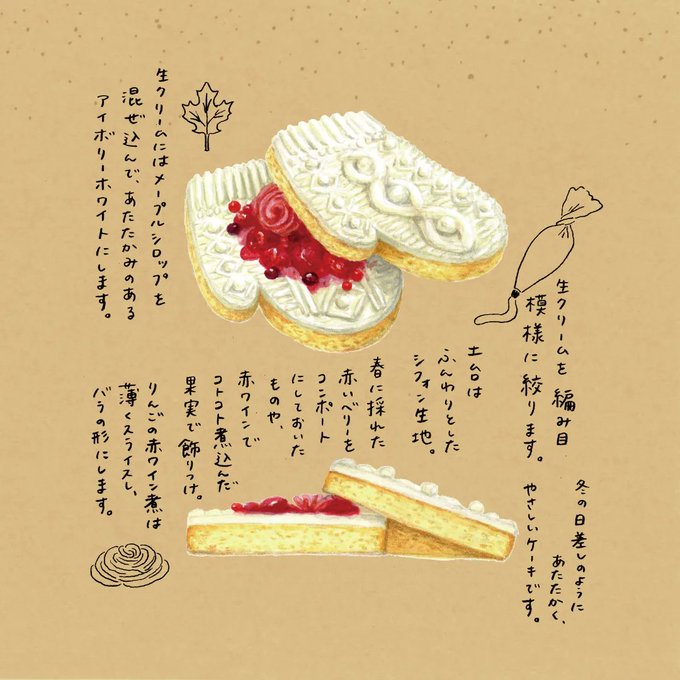 生クリームにはメープルシロップを
混ぜ込んで、あたたかみのある
アイボリーホワイトにします。
生クリームを編み目
模様に絞ります。
土台は
ふんわりとした
シフォン生地。
春に採れた
赤いベリーを
コンポート
にしておいた
ものや、
赤ワインで
コトコト煮込んだ
果実で飾りつけ。
りんごの赤ワイン煮は
薄くスライスし、
バラの形にします。
冬の日差しのように
あたたかく、
やさしいケーキです。